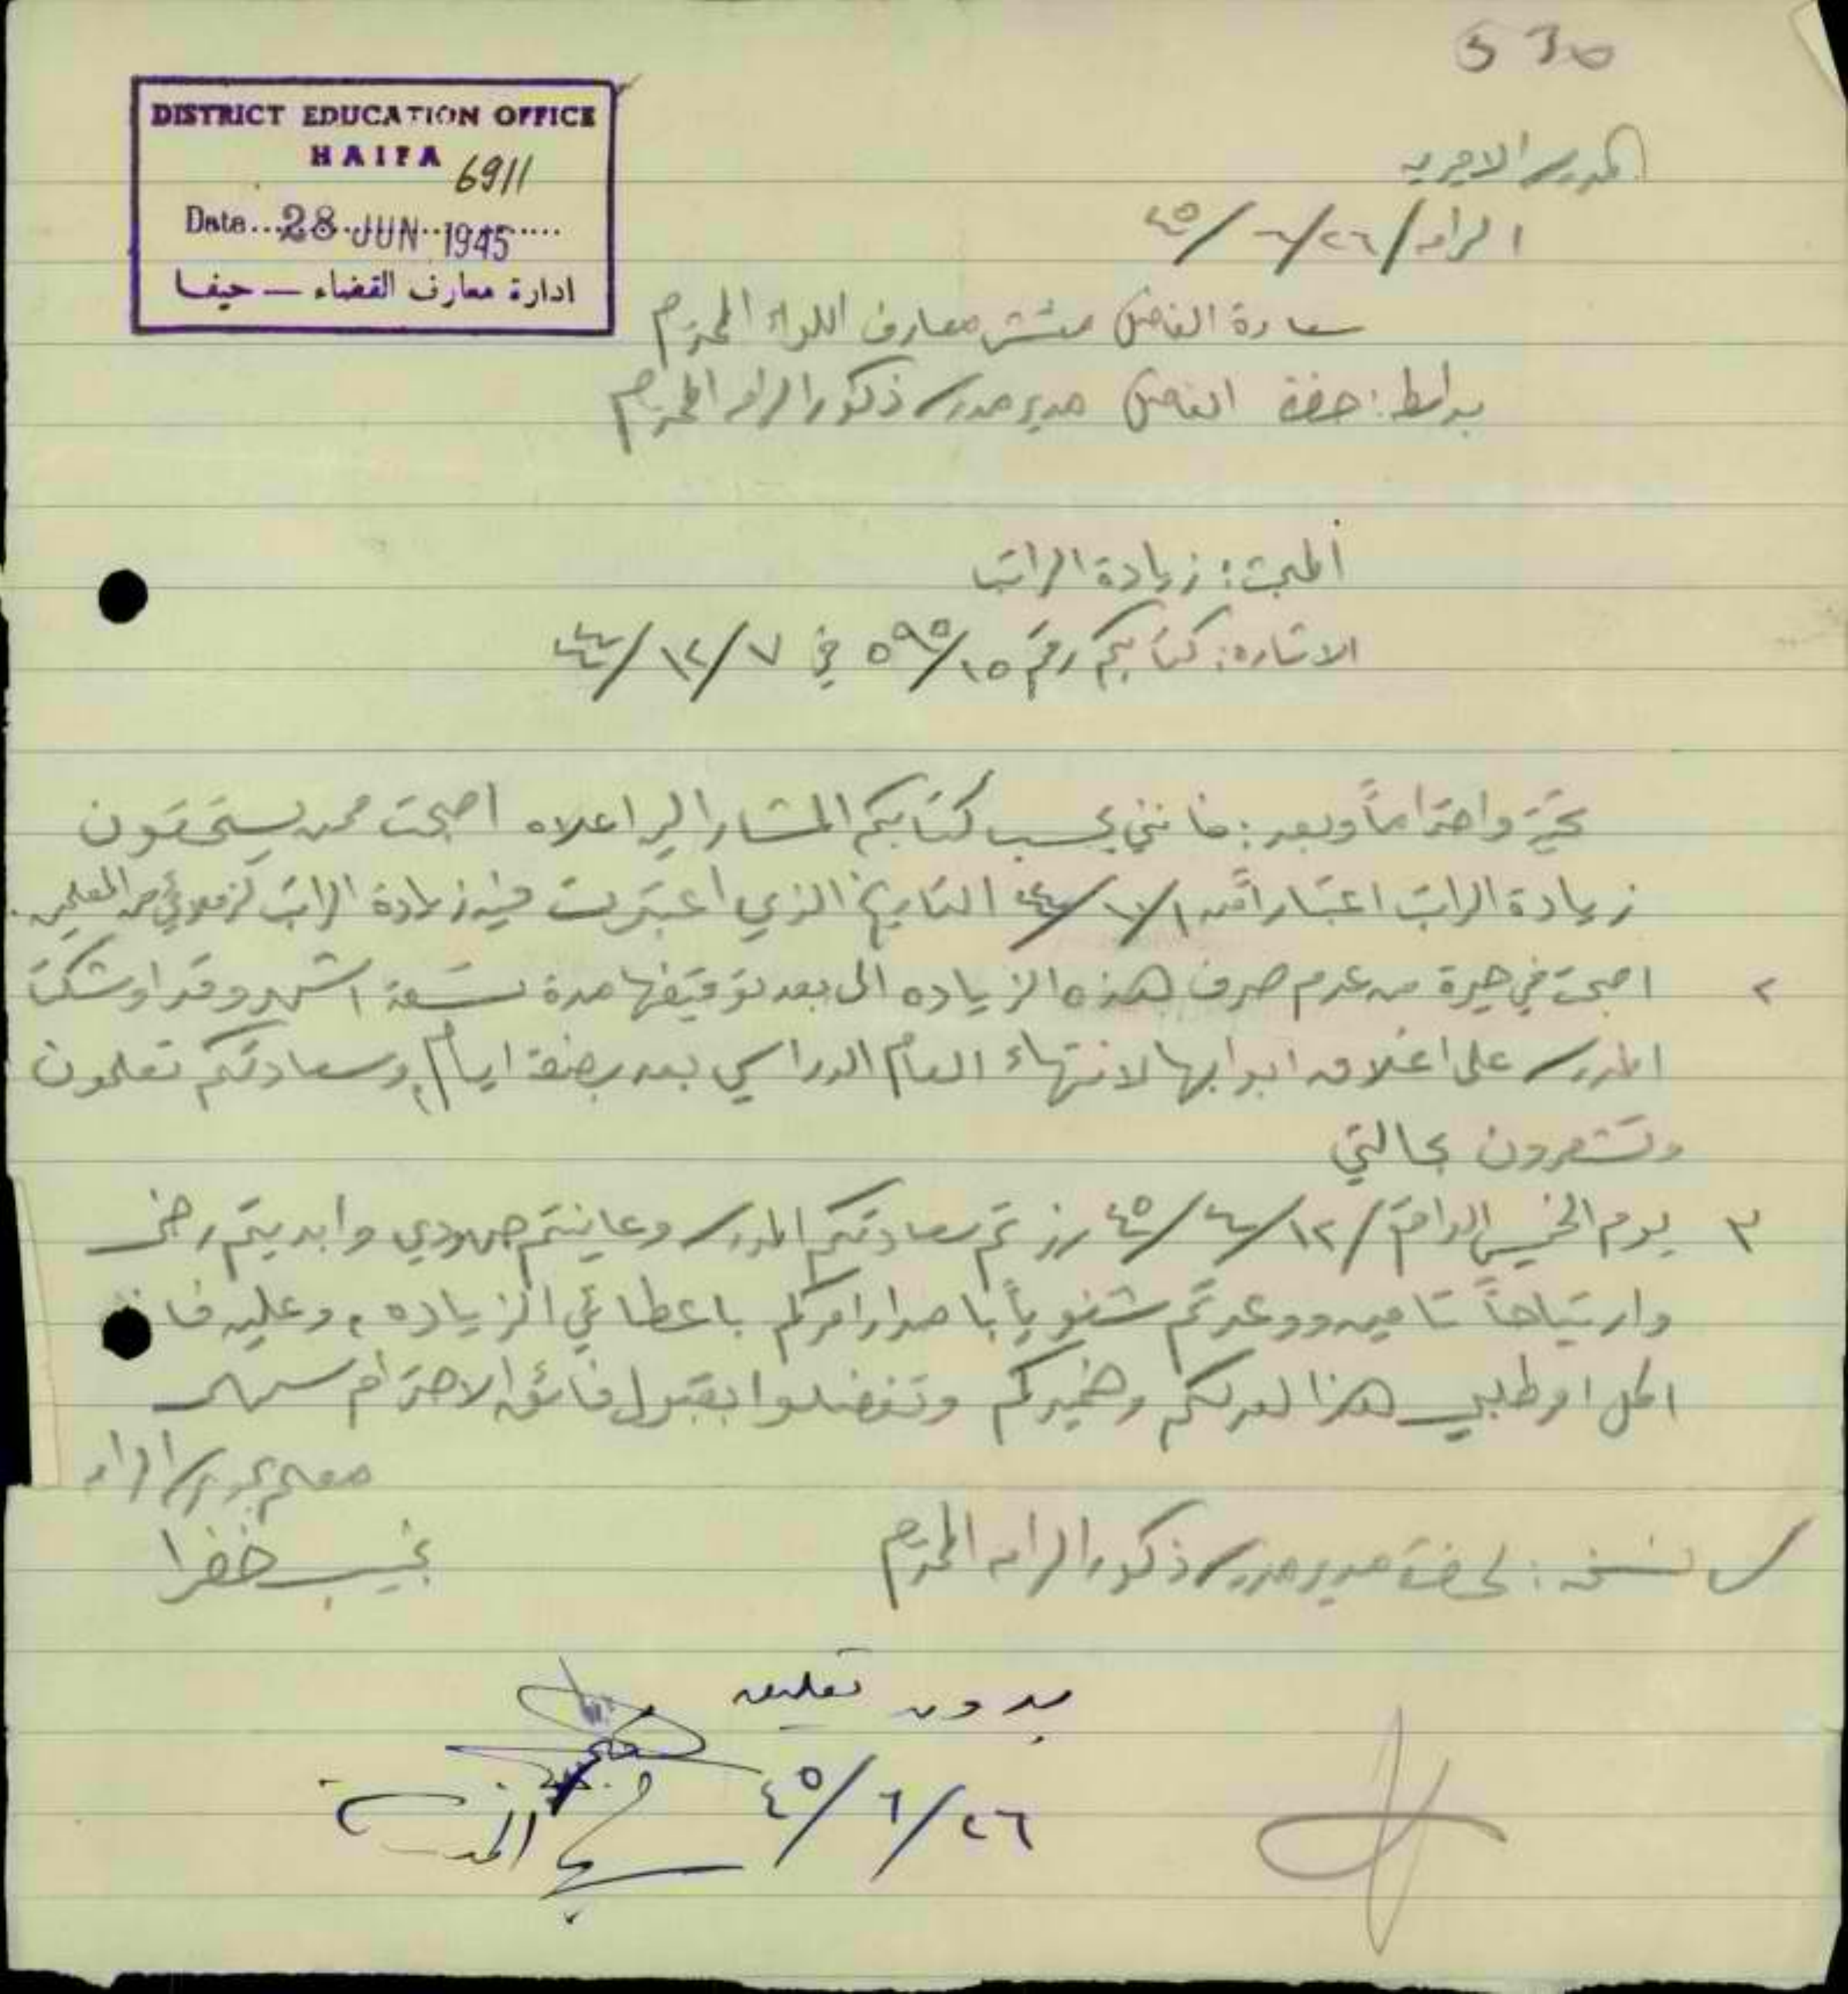 530
DISTRICT EDUCATION OFFICE
HAIFA
6911
Date...28 JUN 1945
ادارة معارف القضاء — حيفا
المدرسة الاميرية
الرامه / ٢٦/٦/٤٥
سعادة الفاضل مفتش معارف اللواء المحترم
بواسطة: حضرة الفاضل مدير مدرسة ذكور الرامه المحترم
المبحث: زيادة الراتب
الاشاره: كتابكم رقم ٥٩٥/١٥ في ٧/١٢/٤٤
تحية واحتراماً وبعد: فانني بحسب كتابكم المشار اليه اعلاه اصبحت ممن يستحقون
زيادة الراتب اعتباراً من ١/٧/٤٤ التاريخ الذي اعتبرت فيه زيادة الراتب لزملائي من المعلمين.
٢ اصبحت في حيرة من عدم صرف هذه الزياده الى بعد توقيفها مدة تسعة اشهر وقد اوشكت
المدرسة على اغلاق ابوابها لانتهاء العام الدراسي بعد بضعة ايام، وسعادتكم تعلمون
وتشعرون بحالتي
٣ يوم الخميس الواقع / ١٢/٤/٤٥ زرتم سعادتكم المدرسة وعاينتم مجهودي وابديتم رضى
وارتياحاً تامين ووعدتم شفوياً باصدار امركم باعطائي الزياده، وعليه فا
اكل امر طلبي هذا لعدلكم وضميركم وتفضلوا بقبول فائق الاحترام سيدي
معلم بمدرسة الرامه
نجيب خفرا
نسخه: لحضرة مدير مدرسة ذكور الرامه المحترم
بدون تعليق
٢٦/٦/٤٥
المدرسة